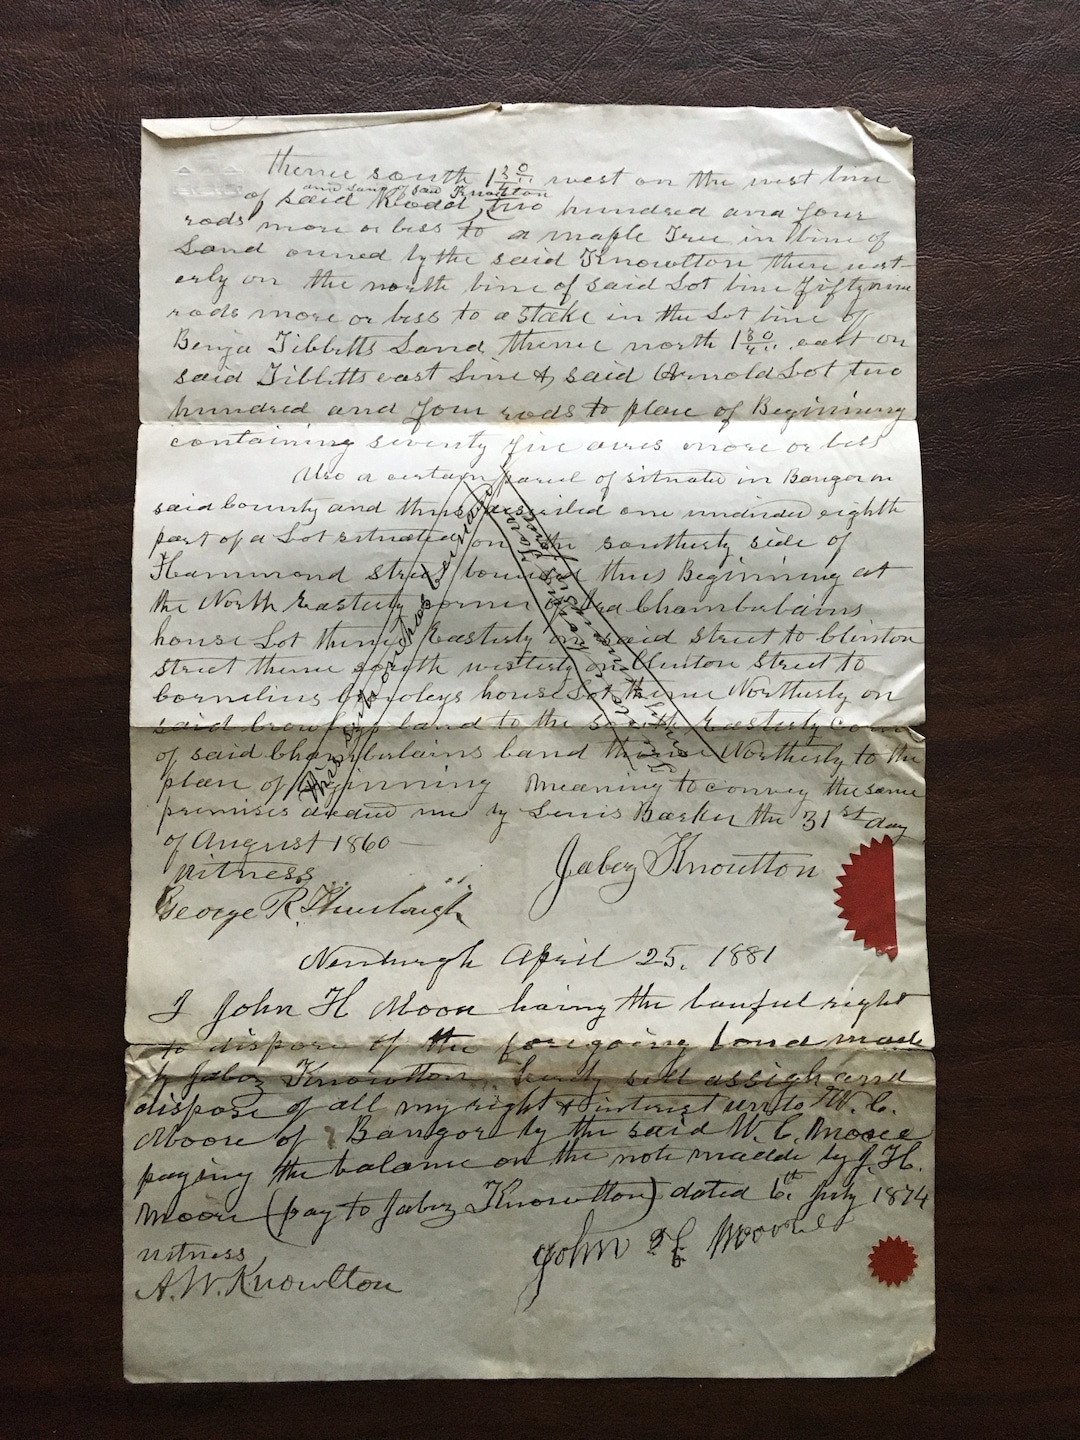 thence south 1 30/4 west on the west line
and land of said Knowlton
of said Rodal two hundred and four
rods more or less to a maple Tree in line of
Land owned by the said Knowlton thence east-
erly on the north line of said Lot line fifty nine
rods more or less to a stake in the Lot line of
Benja Tibbetts Land, thence north 1 30/4 east on
said Tibbetts east line & said Arnold Lot two
hundred and four rods to place of Beginning
containing seventy five acres more or less
Also a certain parcel of situate in Bangor in
said County and thus described one undivided eighth
part of a Lot situated on the southerly side of
Hammond Street bounded thus Beginning at
the North Easterly corner of Chamberlains
house Lot thence Easterly on said street to Clinton
Street thence south westerly on Clinton Street to
Cornelius Crowleys house Lot thence Northerly on
said Crowleys land to the south Easterly corner
of said Chamberlains land thence Northerly to the
place of Beginning Meaning to convey the same
premises deeded me by Lewis Barker the 31st day
of August 1860
Witness
Jabez Knowlton
George R. Thurlough
Newburgh April 25, 1881
I John H Moor having the lawful right
to dispose of the foregoing bond made
by Jabez Knowlton, hereby sell assign and
dispose of all my right & interest unto W. C.
Moore of Bangor by the said W. C. Moore
paying the balance on the note madde by J. H.
Moore (pay to Jabez Knowlton) dated 6th July 1874
witness
John H Moore
A. W. Knowlton